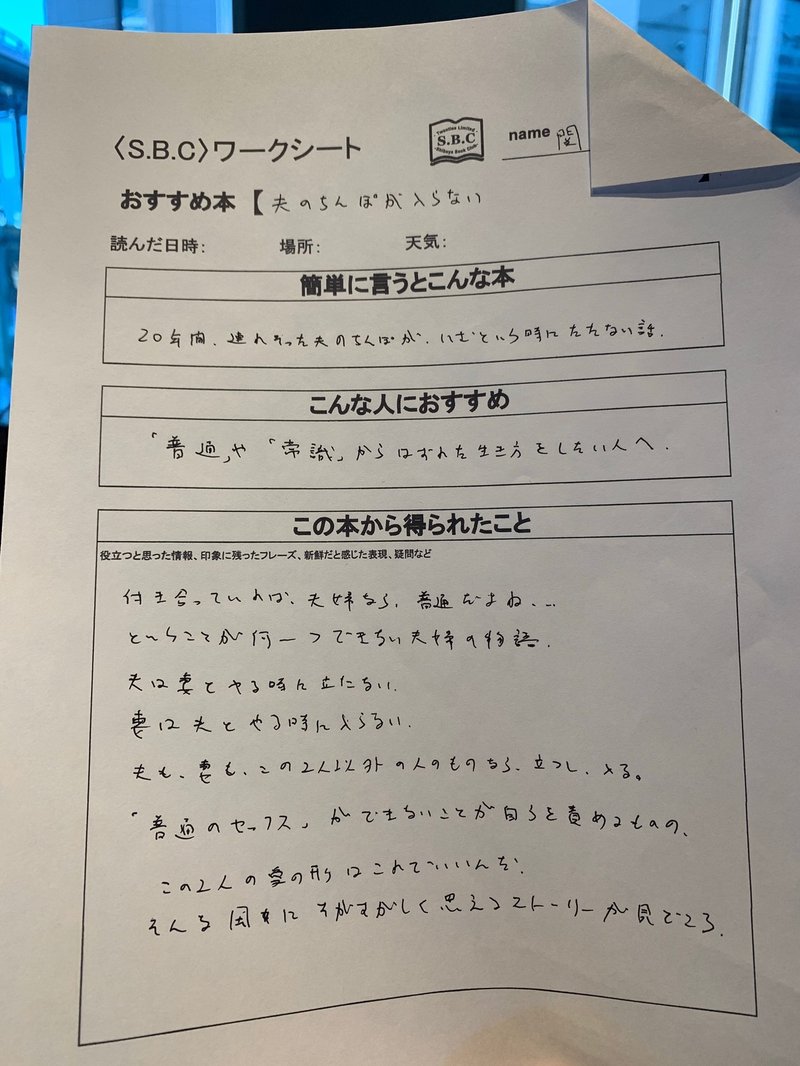 〈S.B.C〉ワークシート
Twenties Limited
S.B.C
Shibuya Book Club
name 関
おすすめ本【夫のちんぽが入らない
読んだ日時: 場所: 天気:
簡単に言うとこんな本
20年間、連れそった夫のちんぽが、いざという時にたたない話.
こんな人におすすめ
「普通」や「常識」からはずれた生き方をしたい人へ.
この本から得られたこと
役立つと思った情報、印象に残ったフレーズ、新鮮だと感じた表現、疑問など
付き合っていれば、夫婦なら、普通だよね…
ということが何一つできない夫婦の物語.
夫は妻とやる時に立たない.
妻は夫とやる時に入らない.
夫も、妻も、この2人以外の人のものなら、立つし、入る。
「普通のセックス」ができないことが自らを責めるものの、
この2人の愛の形はこれでいいんだ.
そんな風にすがすがしく思えるストーリーが見どころ.